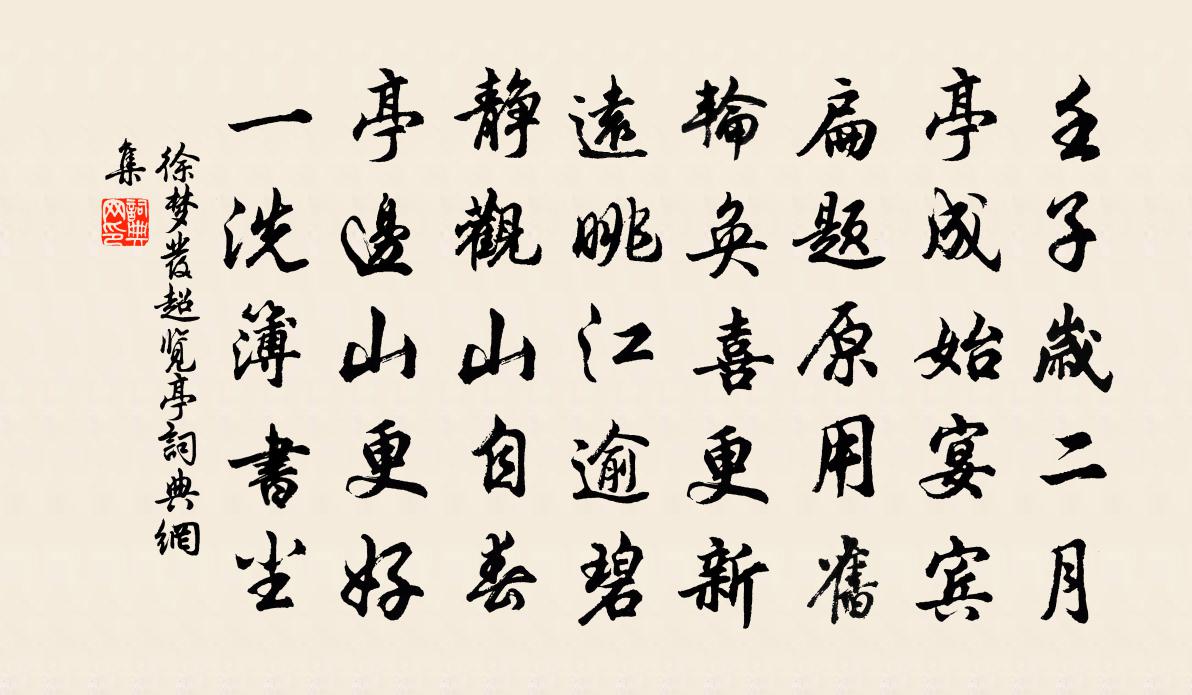 壬子歲二月
亭成始宴賓
扁題原用舊
輪奐喜更新
遠眺江逾碧
靜觀山自春
亭邊山更好
一洗簿書尘
徐梦發超览亭詞典網
集
詞典
网印